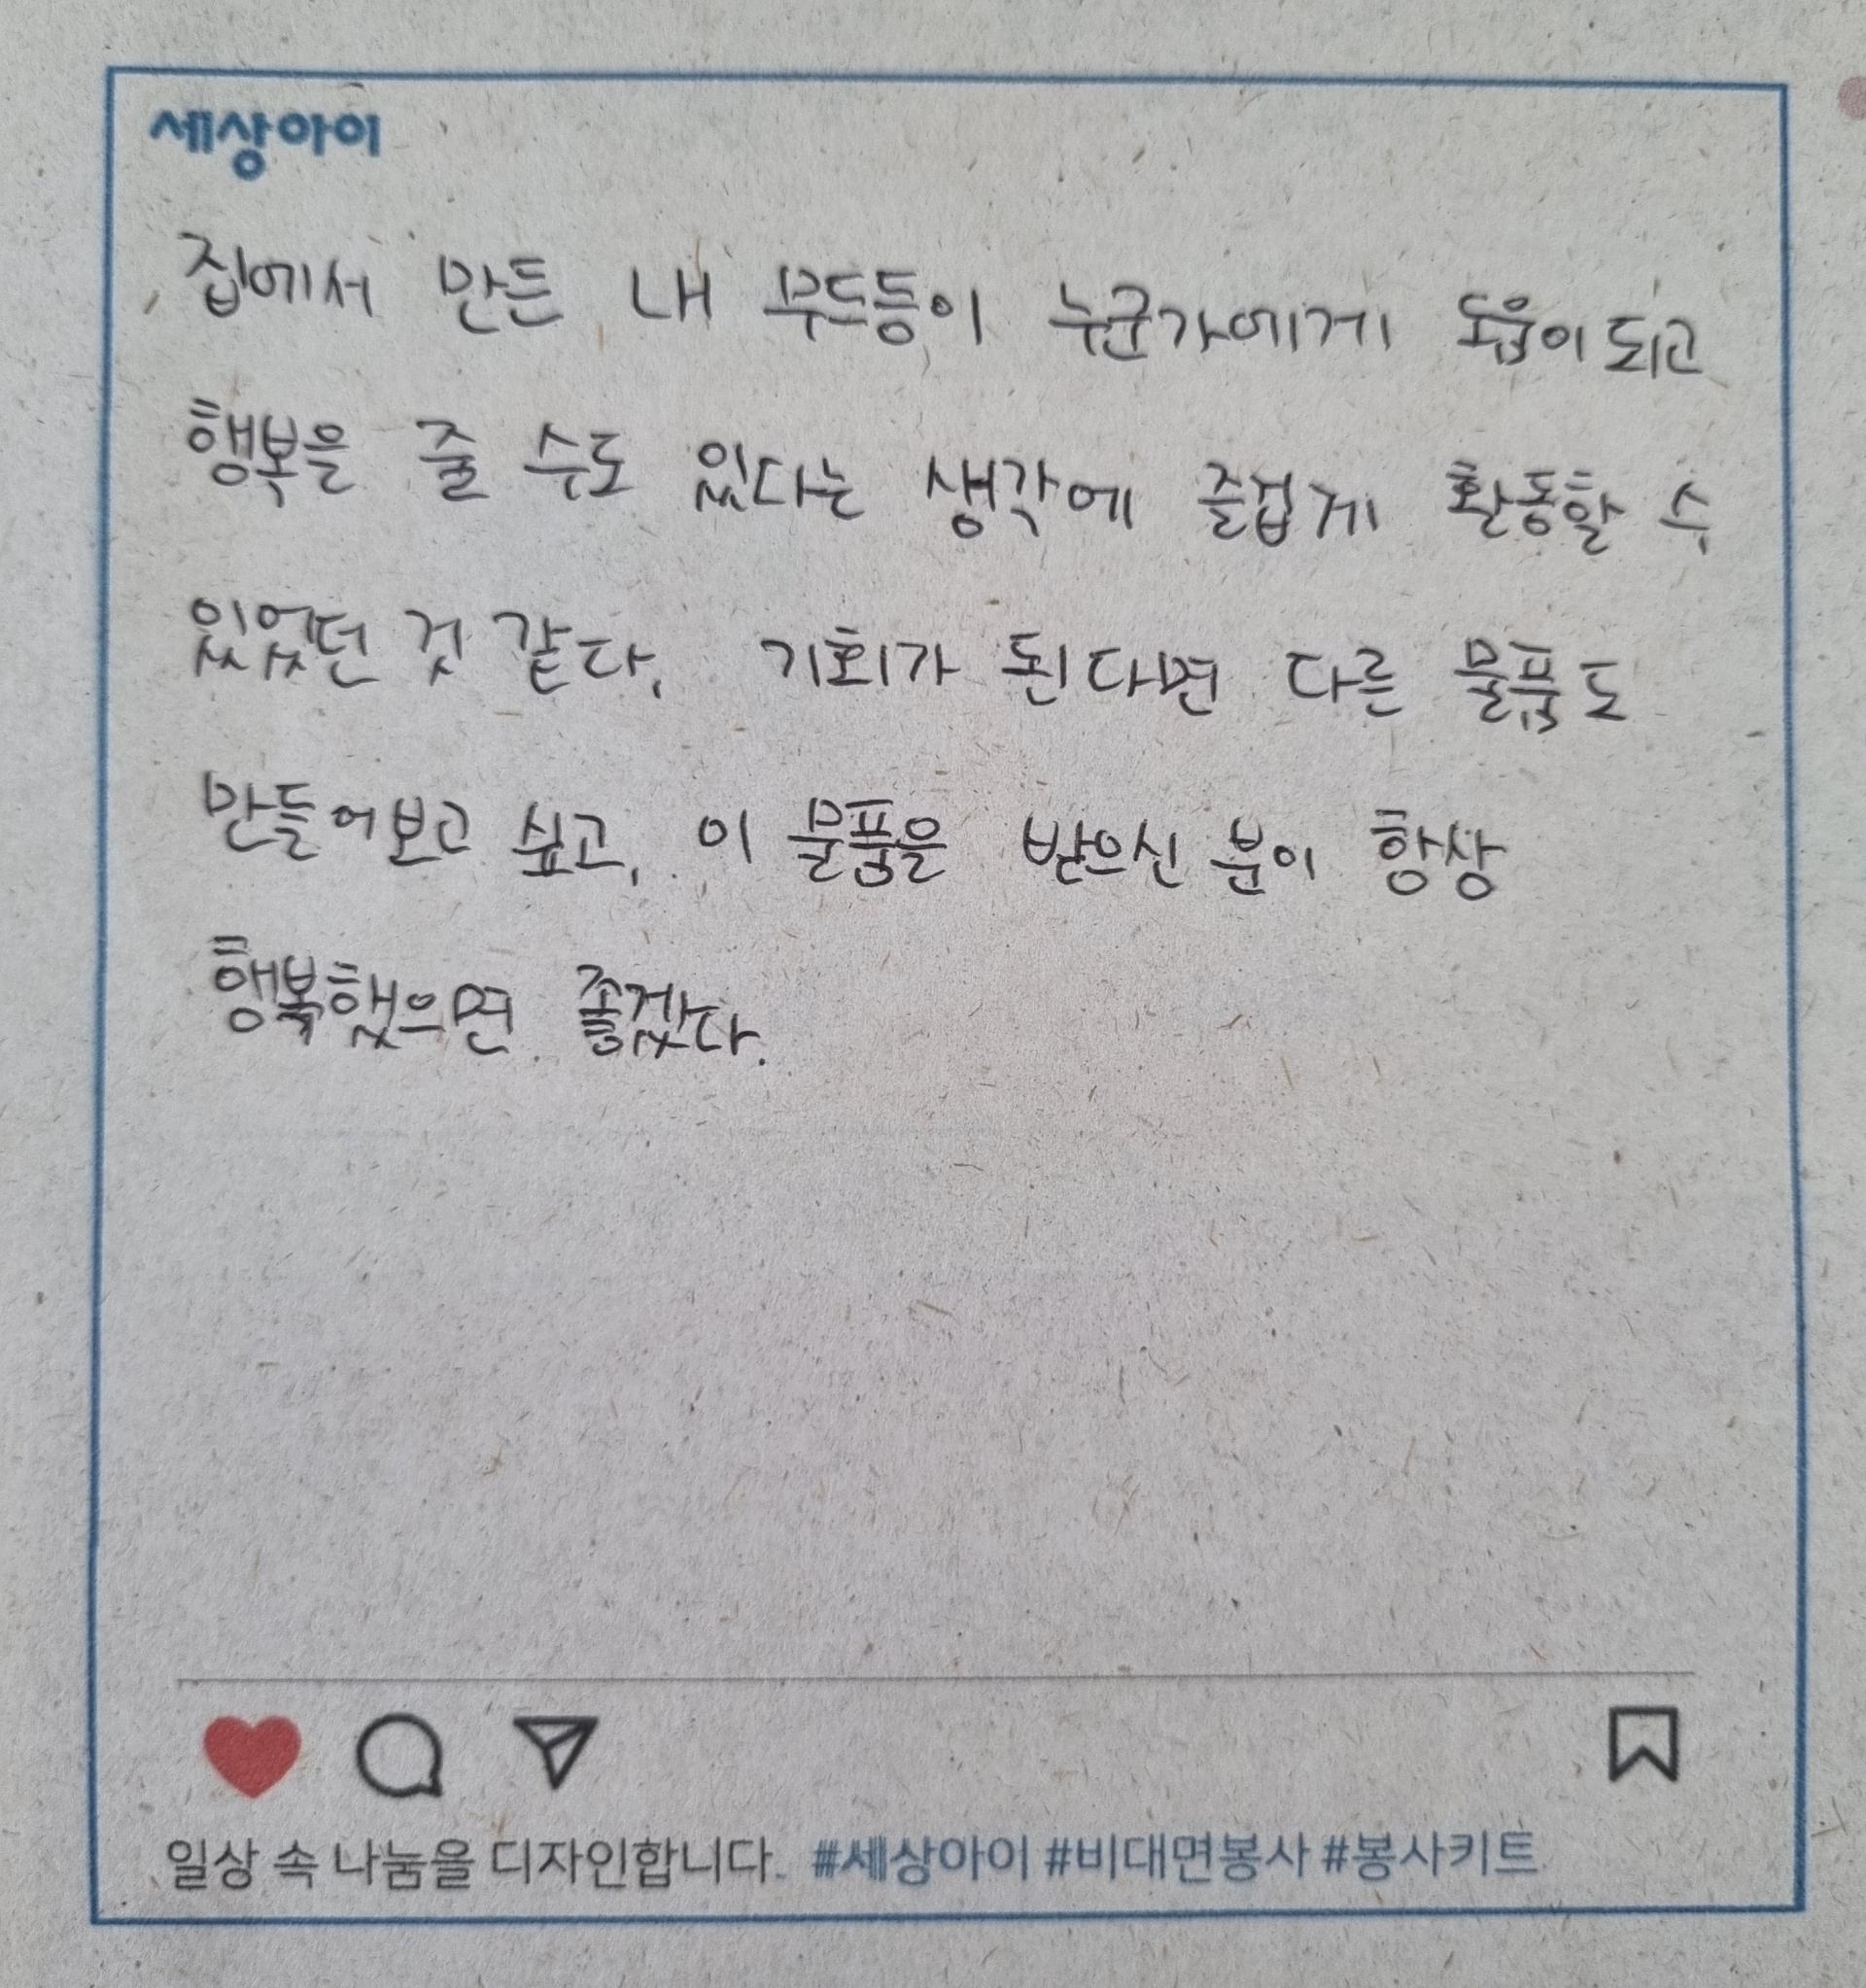 세상아이
집에서 만든 내 무드등이 누군가에게 도움이 되고
행복을 줄 수도 있다는 생각에 즐겁게 활동할 수
있었던 것 같다. 기회가 된다면 다른 물품도
만들어보고 싶고, 이 물품을 받으신 분이 항상
행복했으면 좋겠다.
일상 속 나눔을 디자인합니다. #세상아이 #비대면봉사 #봉사키트